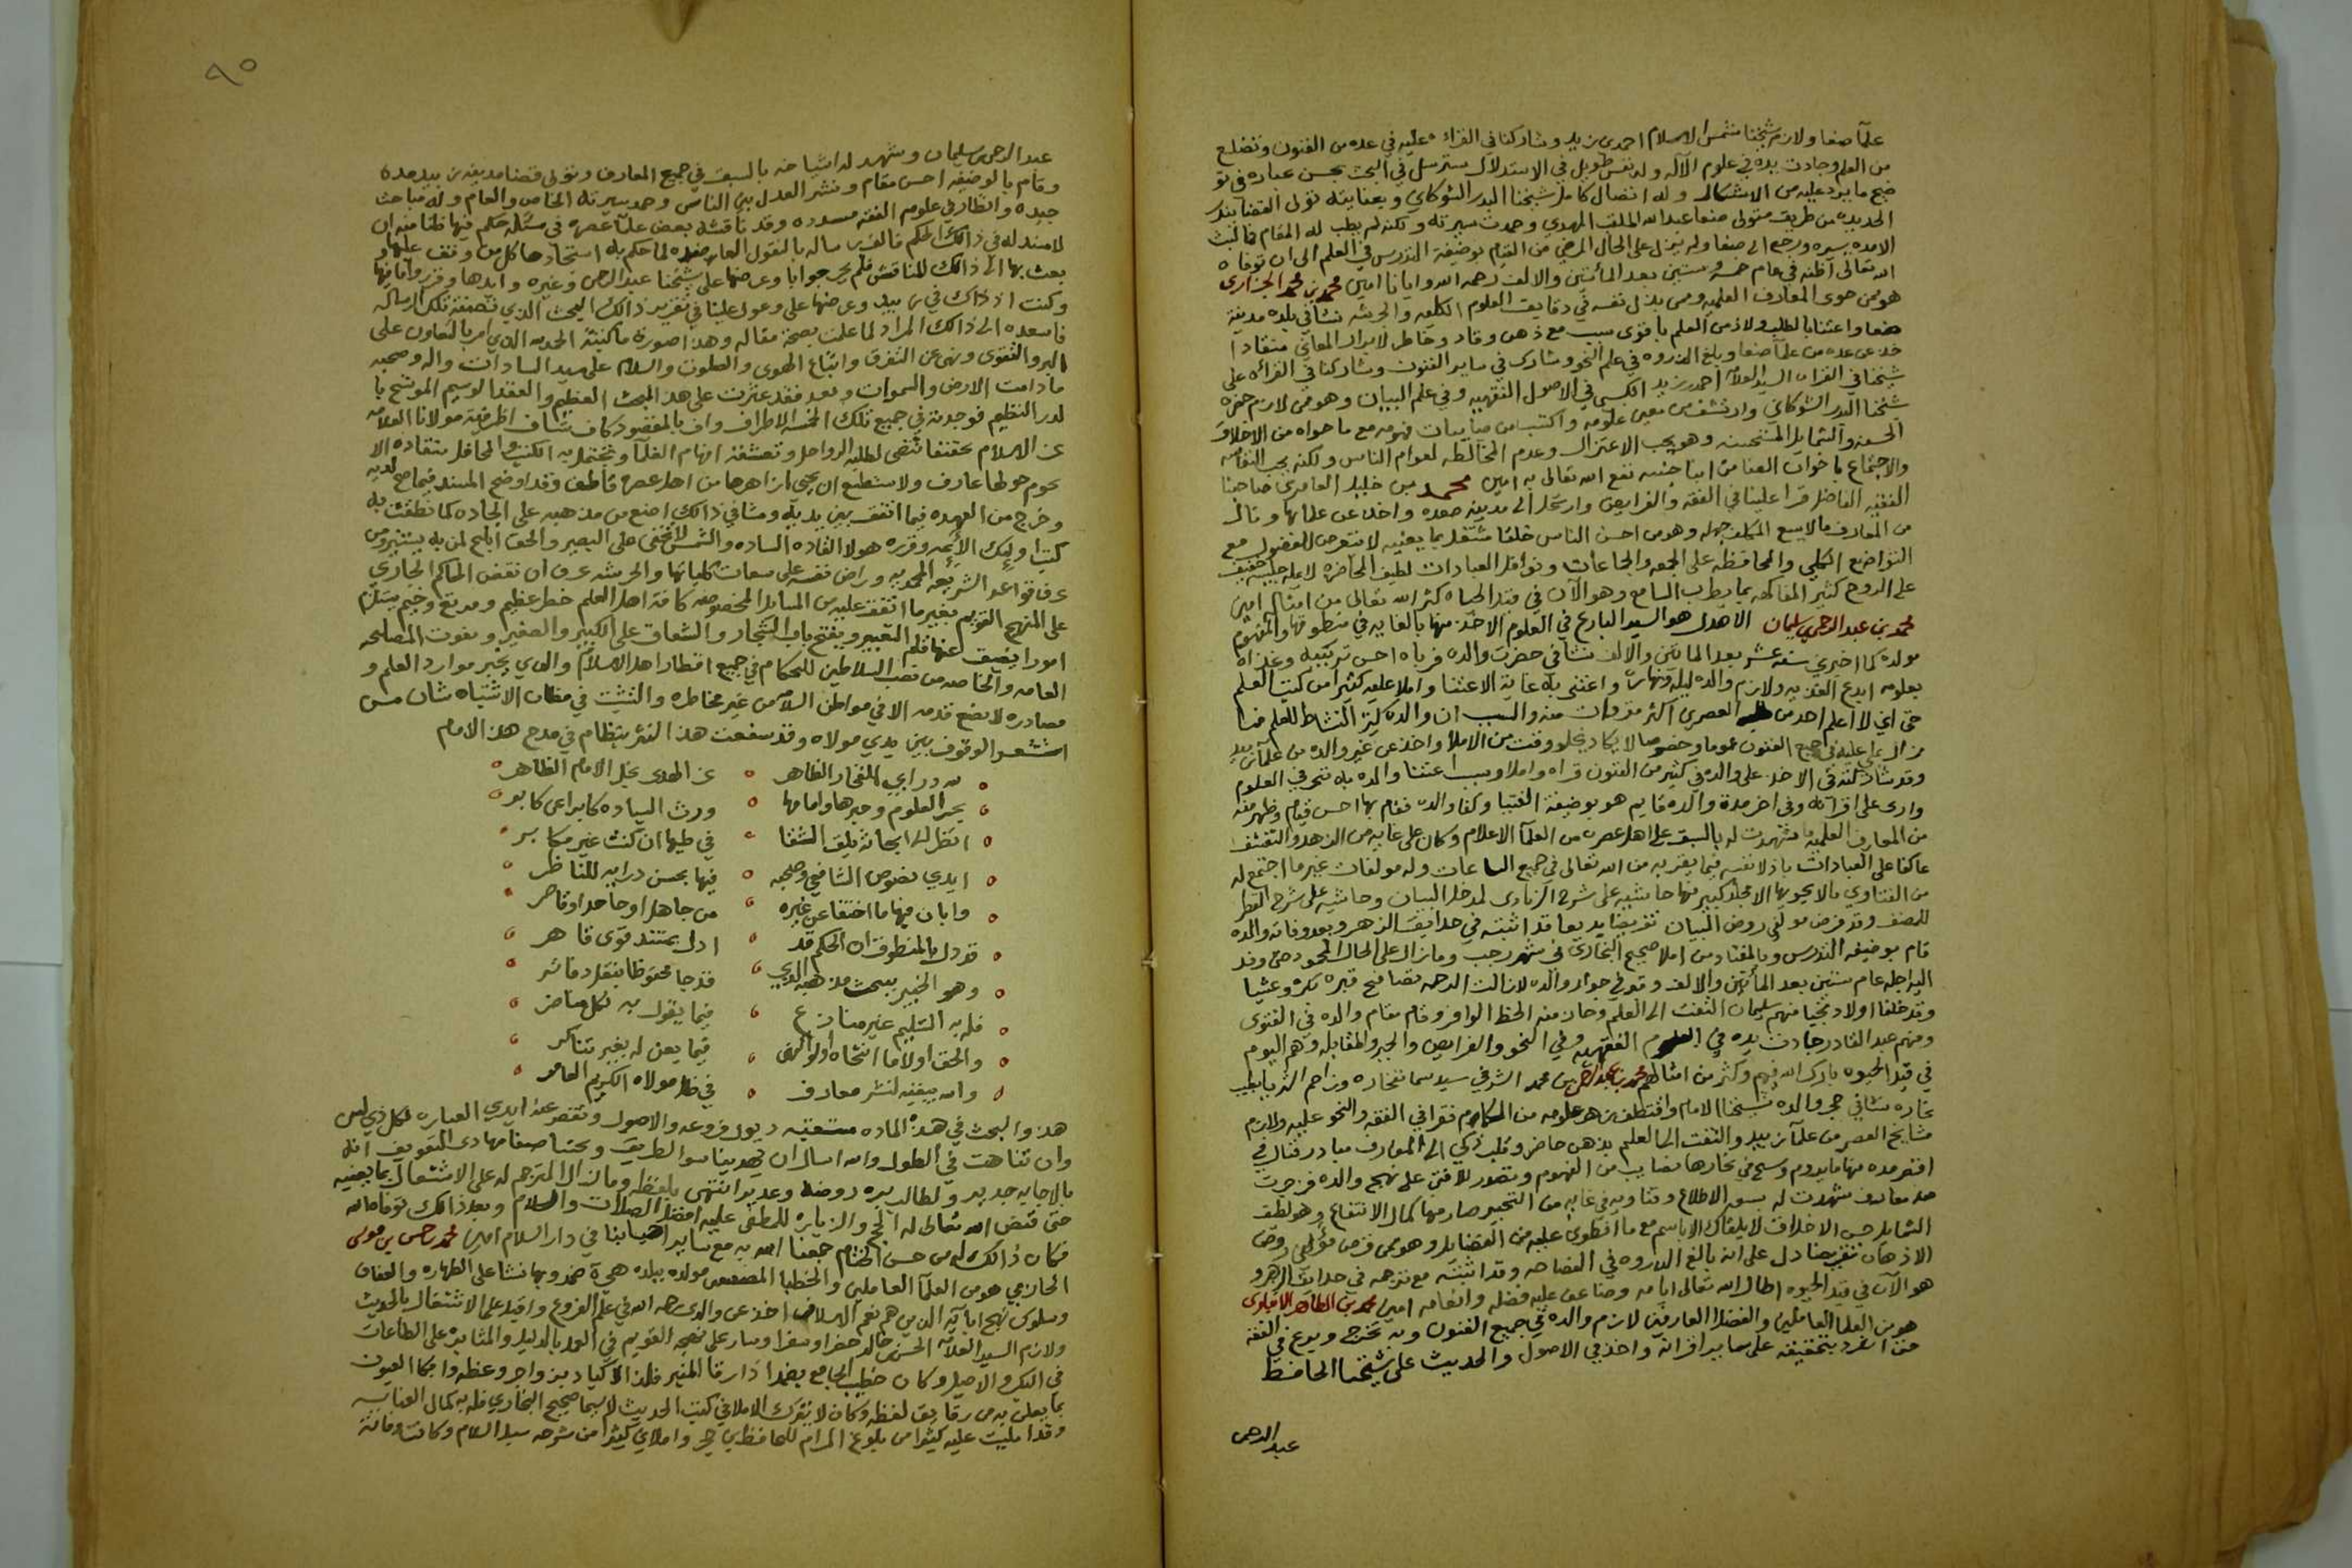 علمآ صنعا ولازم شيخنا شمس الاسلام احمد بن زيد وشاركنا في القراءة عليه في عده من الفنون وتضلع
من العلم وجادت يده في علوم الآله وله نفس طويل في الاستدلال يسترسل في البحث بحسن عباره في تو
ضيح ما يرد عليه من الاشكال وله اتصال كامل بشيخنا البدر الشوكاني وبعنايته تولى القضا ببندر
الحديده من طريق متولى صنعا عبدالله الملقب المهدي وحمدت سيرته ولكنه لم يطب له المقام فما لبث
الا مده يسيره ورجع الى صنعا ولم يزل على الحال المرضي من القيام بوضيفة التدريس في العلم الى ان توفاه
الله تعالى اظنه في عام خمسه وستين بعد المائتين والالف رحمه الله وايانا امين محمد بن محمد
هو ممن حوى المعارف العلميه وممن بذل نفسه في دقايق العلوم الكليه والجزئيه نشا في بلده مدينة
صنعا واعتنا بالطلب ولازم العلم باقوى سبب مع ذهن وقاد وخاطر لابراز المعاني منقادا
خذ عن عده من علمآ صنعا وبلغ الذروه في علم النحو وشارك في ساير الفنون وشاركنا في القرائه على
شيخنا في القران السيد العلامه احمد بن زيد الكبسي في الاصول الفقهيه وفي علم البيان وهو ممن لازم حضرة
شيخنا البدر الشوكاني وارتشف من معين علومه واكتسب من صايبات فهومه مع ما حواه من الاخلاق
الحسنه والشمايل المستحسنه وهو يحب الاعتزال وعدم المخالطه لعوام الناس ولكنه يحب
والاجتماع باخوان الصفا من ابنا جنسه نفع الله تعالى به امين محمد بن خليل العامري صاحبنا
الفقيه الفاضل قرا علينا في الفقه والفرايض وارتحل الى مدينة صعده واخذ عن علمائها ونال
من المعارف ما لا يسع المكلف جهله وهو من احسن الناس خلقا مشتغل بما يعنيه لا يتعرض للفضول مع
التواضع الكلي والمحافظه على الجمعه والجماعات ونوافل العبادات لطيف المحاضره لا يمله جليسه خفيف
على الروح كثير المفاكهه بما يطرب السامع وهو الآن في قيد الحياه كثر الله تعالى من امثاله امين
محمد بن عبدالرحمن سليمان الاهدل هو السيد البارع في العلوم الاخذ منها بالغايه في منطوقها والمفهوم
مولده كما اخبرني سنة عشر بعد المائتين والالف نشا في حضرت والده فرباه احسن تربيه وغذاه
بعلومه ابدع الغذيه ولازم والده ليله ونهاره واعتنى به غاية الاعتنا واملا عليه كثيرا من كتب العلم
حتى اني لا اعلم احد من العصر اكثر مقروات منه والسبب ان والده كثير النشاط للعلم فما
زال يملي عليه في جميع الفنون عموما وخصوصا لا يكاد يخلو وقت من الاملا واخذ عن غير والده من علمآ زبيد
وقد شاركته في الاخذ على والده في كثير من الفنون قراه واملا وبسبب اعتنا والده به تبحر في العلوم
واربى على اقرانه وفي اخر مدة والده قايم هو بوضيفة الفتيا وكفا والده فقام بها احسن قيام وظهر منه
من المعارف العلميه ما شهدت له بالسبق على اهل عصره من العلمآ الاعلام وكان على غايه من الزهد والتقشف
عاكفا على العبادات باذلا نفسه فيما يقربه من الله تعالى في جميع الساعات وله مولفات غير ما اجتمع له
من الفتاوي ما لا يحويها الا مجلد كبير منها حاشيه على شرح الزبادى لمدخل البيان وحاشيه على شرح القطر
للمصنف وقد قرض مولفي روض البيان تقريضا بديعا قد اثبته في حدايق الزهر وبعد وفاة والده
قام بوضيفه التدريس وبالمعتاد من املا صحيح البخاري في شهر رجب وما زال على الحال المحمود حتى وفد
اليه اجله عام ستين بعد المائتين والالف وقبر في جوار والده لا زالت الرحمه تصافح قبره بكره وعشيا
وقد خلفا اولاد نجبا منهم سليمان التفت الى العلم وحاز منه الحظ الوافر وقام مقام والده في الفتوى
ومنهم عبدالقادر جادت يده في العلوم الفقهيه وفي النحو والفرايض والجبر والمقابله وهم اليوم
في قيد الحيوه بارك الله فيهم وكثر من امثالهم محمد بن عبدالرحمن بن محمد الشرفي سيد سما نجاره وزاحم الثريا بطيب
نجاره نشا في حجر والده شيخنا الامام واقتطف من زهر علومه من الاكمام فقرا في الفقه والنحو عليه ولازم
مشايخ العصر من علمآ زبيد والتفت الى العلم بذهن حاضر وقلب زكي الى المعارف مبادر فنال في
اقصر مده منها ما يروم وسبح في بحارها بصايب من الفهوم وتصدر للافتى على نهج والده فزخرت
معارفه شهدت له بسعة الاطلاع وفتاويه في غايه من التحبير صار منها كمال الانتفاع وهو لطف
الشمايل حسن الاخلاق لا يلقاك الا باسم مع ما انطوى عليه من الفضايل وهو ممن قرض مؤلفي روض
الاذهان تقريضا دل على انه بالغ الذروه في الفصاحه وقد اثبته مع ترجمه في حدايق الزهر و
هو الآن في قيد الحيوه اطال الله تعالى ايامه وضاعف عليه فضله وانعامه امين محمد بن الطاهر الانباري
هو من العلما العاملين والفضلا العارفين لازم والده في جميع الفنون وبه تخرج وبرع في الفقه
حتى انفرد بتحقيقه على ساير اقرانه واخذ في الاصول والحديث على شيخنا الحافظ
عبدالرحمن
٩٥
عبدالرحمن سليمان وشهد له اشياخه بالسبق في جميع المعارف وتولى قضا مدينة زبيد مدة
وقام بالوضيفه احسن مقام ونشر العدل بين الناس وحمد سيرته الخاص والعام وله مباحث
جيده وانظار في علوم الفقه مسدده وقد ناقشه بعض علمآ عصره في مسئله حكم فيها ظنا منه ان
لا مستند له في ذالك الحكم فالف رساله بالنقول لما حكم به استجادها كل من وقف عليها و
بعث بها الى ذالك المناقش فلم يحر جوابا وعرضها على شيخنا عبدالرحمن وغيره وايدها وقرر ما فيها
وكنت اذ ذاك في زبيد وعرضها علي وعول علينا في تقرير ذالك البحث الذي تضمنته تلك الرساله
فاسعده الى ذالك المراد لما علمت بصحة مقاله وهذا صورة ما كتبته الحمدلله الذي امر بالتعاون على
البر والتقوى ونهى عن التفرق واتباع الهوى والصلوت والسلام على سيد السادات واله وصحبه
ما دامت الارض والسموات وبعد فقد عثرت على هذ البحث العظيم والعقد الوسيم الموشح با
لدر النظيم فوجدته في جميع تلك الاطراف واف بالمقصود كاف شاف اظهر فيه مولانا العلامه
عز الاسلام تحقيقا تنضى لطلبه الرواحل وتعشقه افهام العلمآ وتحتفل به الكتب والمحافل بتقاده الا
يحوم حولها عارف ولا يستطيع ان يجنى ازاهرها من اهل عصره قاطف وقد اوضح المستند فيما صح لديه
وخرج من العهده فيما اتفق بين يديه ومشا في ذالك على الجاده كما نطقت به
كتب اوليك الأئمه وقرره هولا القاده الساده والشمس لا تخفى على البصير والحق ابلج لمن به يستنير ومن
عرف قواعد الشريعه المحمديه وراض نفسه على سمات كلياتها والجزئيه عرف ان نقض الحاكم الجاري
على المنهج القويم بغير ما اتفق عليه من المسايل المخصوصه كافة اهل العلم خطر عظيم ومرتع وخيم يستلزم
امورا يضيق عنها قلم التعبير ويفتح باب الشجار والشقاق على الكبير والصغير ويفوت المصلحه
العامه والخاصه من نصب السلاطين للحكام في جميع اقطار اهل الاسلام والذي يخبر موارد العلم و
مصادره لا يضع قدمه الا في مواطن السلامه من غير مخاطره والتثبت في مظان الاشتباه شان من
استشعر الوقوف بين يدي مولاه وقد شفعت هذ النثر بنظام في مدح هذ الامام
لله در ابي الفخار الظاهر ٥ عز الهدى نجل الامام الطاهر
بحر العلوم وحبرها وامامها ٥ ورث السياده كابرا عن كابر
انظر الى ابحاثه يلق الشفا ٥ في طيها ان كنت غير مكابر
ابدى نصوص الشافعي وصحبه ٥ فيها بحسن دراية للناظر
وابان فيها ما اختفا عن غيره ٥ من جاهل او جاحد او قاصر
قد دل بالمنطوق ان الحكم قد ٥ ادلى بمستند قوى قاهر
وهو الخبير ببحث مذهبه الذي ٥ قد جا محفوظا بنقل دفاتر
فله التسليم غير منازع ٥ فيما يقول به لكل مناضر
والحق اولا ما انتحاه اولو النهى ٥ فيما يعن له بغير تناكر
والله يبقيه لنشر معارف ٥ في ظل مولاه الكريم الغافر
هذ والبحث في هذه الماده ذيول فروعه والاصول وتقصر عنه ايدي العباره لكل ذي لسن
وان تناهت في الطول والله اسال ان يهدينا سوا الطريق ويجنبنا صفا التعويق انه
بالاجابه جدير ولطالب بره روضه وغدير انتهى بلفظه وما زال المترجم له على الاشتغال بما يعنيه
حتى قيض الله تعالى له الحج والزياره للمصطفى عليه افضل الصلات والسلام وبعد ذالك توفاه الله
فكان ذالك له من حسن الختام جمعنا الله به مع ساير احبابنا في دار السلام امين محمد بن حسن بن موسى
الحازمي هو من العلمآ العاملين والخطبا المصقعين مولده ببلده هجرة ضمد وبها نشا على الطهاره والعفاف
وسلوك نهج ابآيه الذين هم نعم الاسلاف اخذ عن والدي رحمه الله في علم الفروع واقبل على الاشتغال بالحديث
ولازم السيد العلامه الحسن بن خالد حضرا وسفرا وسار على نهجه القويم في العمل بالدليل والمثابره على الطاعات
في البكر والاصيل وكان خطيب الجامع بضمد اذا رقا المنبر فلذ الاكباد بزواجر وعظه وابكا العيون
بما يملي به من رقايق لفظه وكان لا يترك الاملا في كتب الحديث لا سيما صحيح البخاري فله به كمال العنايه
وقد امليت عليه كثيرا من بلوغ المرام للحافظ بن حجر واملا لي كثيرا من شرحه سبل السلام وكانت وفاته